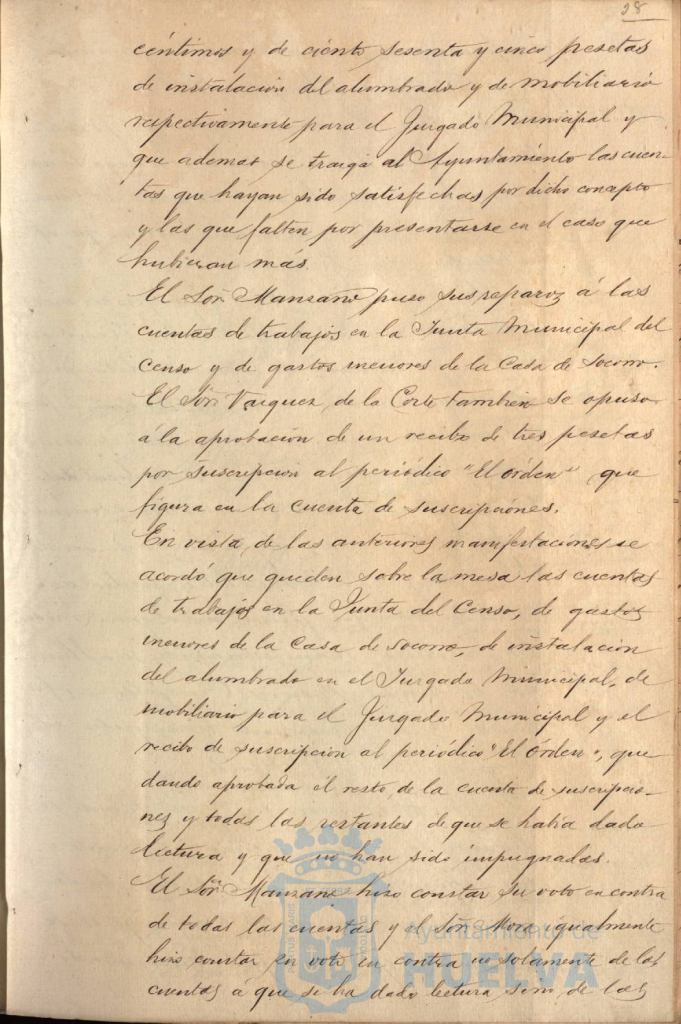 28
céntimos y de ciento sesenta y cinco pesetas
de instalacion del alumbrado y de mobiliario
respectivamente para el Juzgado Municipal y
que ademas se traiga al Ayuntamiento las cuen-
tas que hayan sido satisfechas por dicho concepto
y las que falten por presentarse en el caso que
hubieran más.
El Sor. Manzano puso sus reparos á las
cuentas de trabajos en la Junta Municipal del
Censo y de gastos menores de la Casa de Socorro.
El Sor. Vazquez de la Corte tambien se opuso
á la aprobacion de un recibo de tres pesetas
por suscripcion al periódico "El órden" que
figura en la cuenta de suscripciones.
En vista de las anteriores manifestaciones se
acordó que queden sobre la mesa las cuentas
de trabajos en la Junta del Censo, de gastos
menores de la Casa de Socorro, de instalacion
del alumbrado en el Juzgado Municipal, de
mobiliario para el Juzgado Municipal y el
recibo de suscripcion al periódico "El órden", que
dando aprobada el resto de la cuenta de suscripcio-
nes y todas las restantes de que se habia dado
lectura y que no han sido impugnadas.
El Sor. Manzano hizo constar su voto en contra
de todas las cuentas y el Sor. Mora igualmente
hizo constar su voto en contra no solamente de las
cuentas á que se ha dado lectura sino de las
Ayuntamiento de
HUELVA